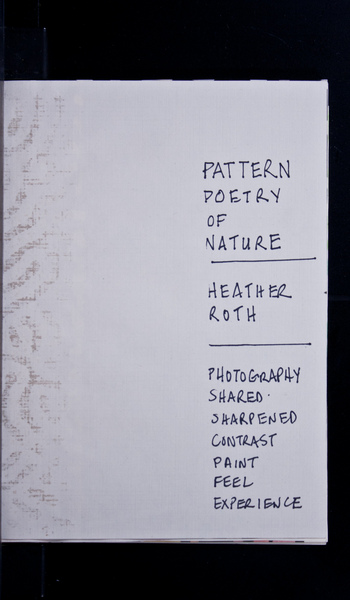 PATTERN
POETRY
OF
NATURE
HEATHER
ROTH
PHOTOGRAPHY
SHARED.
SHARPENED
CONTRAST
PAINT
FEEL
EXPERIENCE